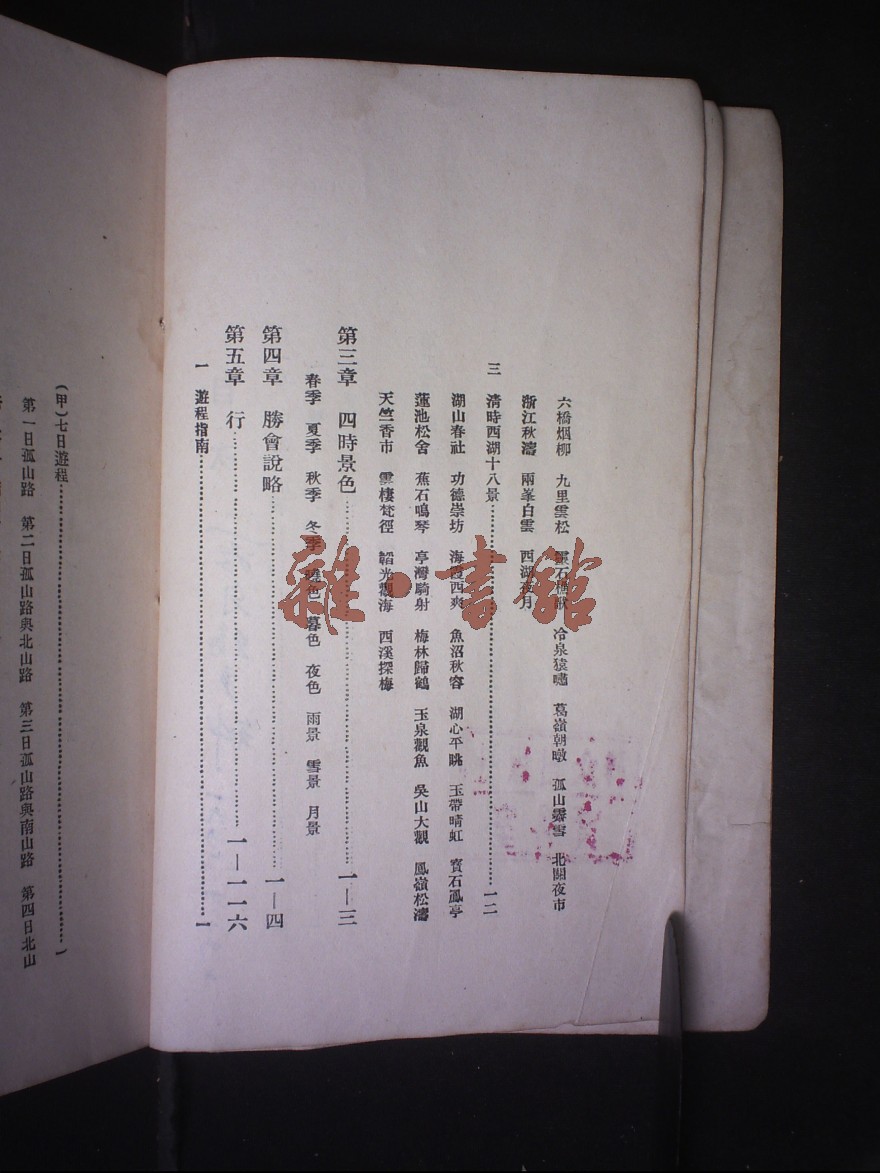 六橋烟柳　九里雲松　靈石樵歌　冷泉猿嘯　葛嶺朝暾　孤山霽雪　北關夜市
浙江秋濤　兩峯白雲　西湖夜月
三　清時西湖十八景……………………一二
湖山春社　功德崇坊　海霞西爽　魚沼秋容　湖心平眺　玉帶晴虹　寶石鳳亭
蓮池松舍　蕉石鳴琴　亭灣騎射　梅林歸鶴　玉泉觀魚　吳山大觀　鳳嶺松濤
天竺香市　雲棲梵徑　韜光觀海　西溪探梅
第三章　四時景色……………………一—三
春季　夏季　秋季　冬季　曉色　暮色　夜色　雨景　雪景　月景
第四章　勝會說略……………………一—四
第五章　行……………………一—一一六
一　遊程指南……………………一
(甲)七日遊程……………………一
第一日孤山路　第二日孤山路與北山路　第三日孤山路與南山路　第四日北山
雜·書館